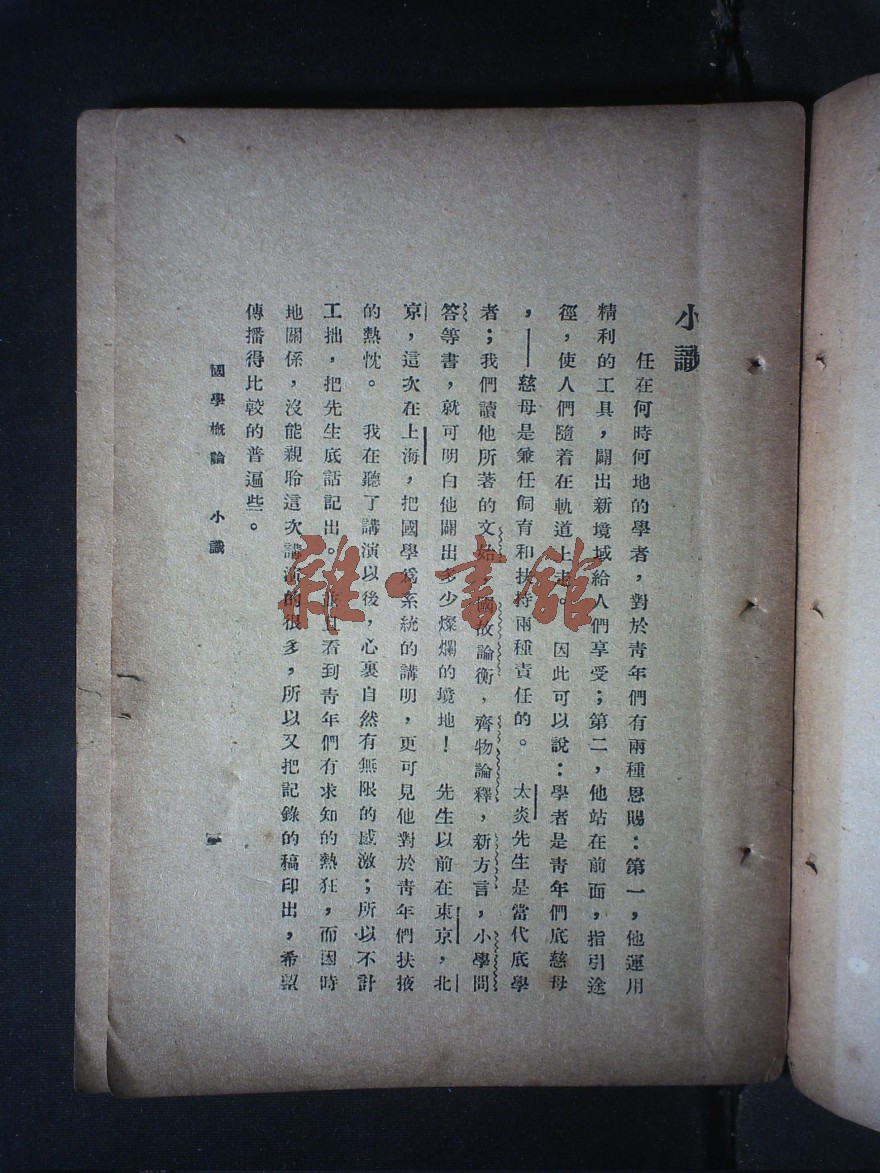 小識
任在何時何地的學者，對於靑年們有兩種恩賜：第一，他運用
精利的工具，闢出新境域給人們享受；第二，他站在前面，指引途
徑，使人們隨着在軌道上走。因此可以說：學者是靑年們底慈母
，——慈母是兼任飼育和扶持兩種責任的。太炎先生是當代底學
者；我們讀他所著的文始，國故論衡，齊物論釋，新方言，小學問
答等書，就可明白他闢出多少燦爛的境地！先生以前在東京，北
京，這次在上海，把國學爲系統的講明，更可見他對於靑年們扶掖
的熱忱。我在聽了講演以後，心裏自然有無限的感激；所以不計
工拙，把先生底話記出。並且看到靑年們有求知的熱狂，而因時
地關係，沒能親聆這次講演的很多，所以又把記錄的稿印出，希望
傳播得比較的普遍些。
國學概論 小識
雜·書館